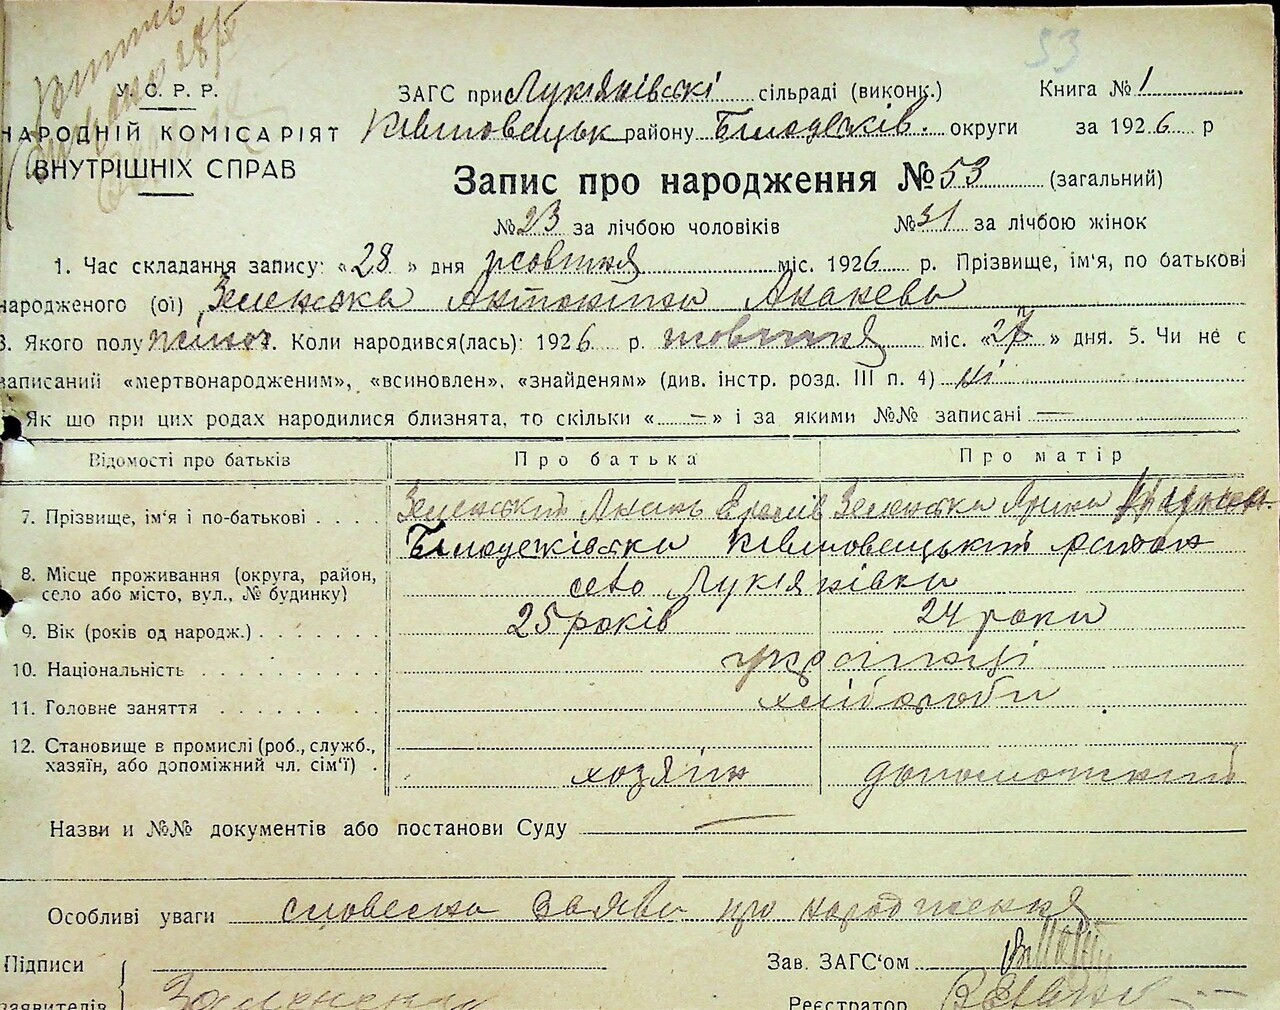 53
У.С.Р.Р.
НАРОДНІЙ КОМІСАРІЯТ
ВНУТРІШНІХ СПРАВ
ЗАГС при Лукянівські сільраді (виконк.) Книга № 1
району округи за 1926 р
Запис про народження № 53 (загальний)
№ 23 за лічбою чоловіків № 31 за лічбою жінок
1. Час складання запису: « 28 » дня жовтня міс. 1926 р. Прізвище, ім'я, по батькові
народженого (ої) Зеленська Антоніна
3. Якого полу жіноч. Коли народився(лась): 1926 р. жовтня міс. « 27 » дня. 5. Чи не є
записаний «мертвонародженим», «всиновлен», «знайденям» (див. інстр. розд. III п. 4) ні
Як шо при цих родах народилися близнята, то скільки « — » і за якими №№ записані —
Відомості про батьків Про батька Про матір
7. Прізвище, ім'я і по-батькові . . . . Зеленський Зеленська
район
8. Місце проживання (округа, район,
село або місто, вул., № будинку) село Лукянівка
9. Вік (років од народж.) . . . . . . . 25 років 24 роки
10. Національність . . . . . . . . . українці
11. Головне заняття . . . . . . . . хлібороби
12. Становище в промислі (роб., служб.,
хазяїн, або допоміжний чл. сім'ї) . хозяїн
Назви и №№ документів або постанови Суду —
Особливі уваги словесна заява про народження
Підписи Зав. ЗАГС'ом
заявителів { Реєстратор